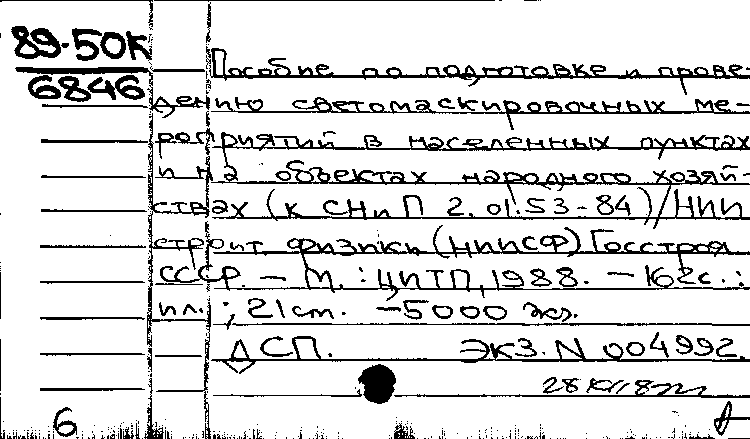 89-50К
6846
Пособие по подготовке и прове-
дению светомаскировочных ме-
роприятий в населенных пунктах
и на объектах народного хозяй-
ствах (к СНиП 2.01.53-84)/НИИ
строит. физики (НИИСФ) Госстроя
СССР. — М.: ЦИТП, 1988. — 162с.:
ил.; 21см. — 5000 экз.
ДСП. ЭКЗ. N 004992.
6